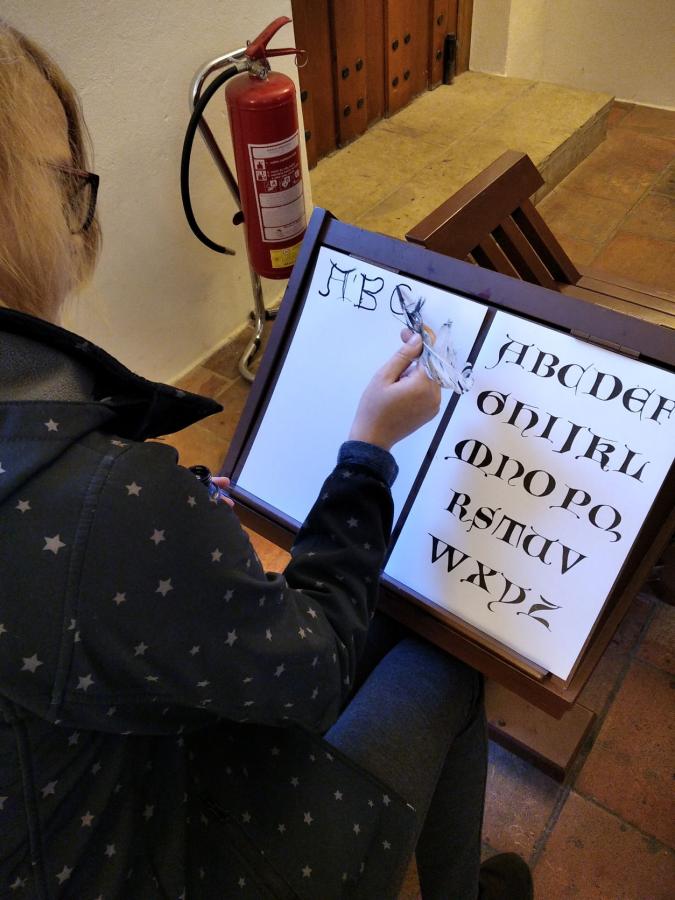 ABC
ABCDEF
GHIJKL
MNOPQ
RSTUV
WXYZ